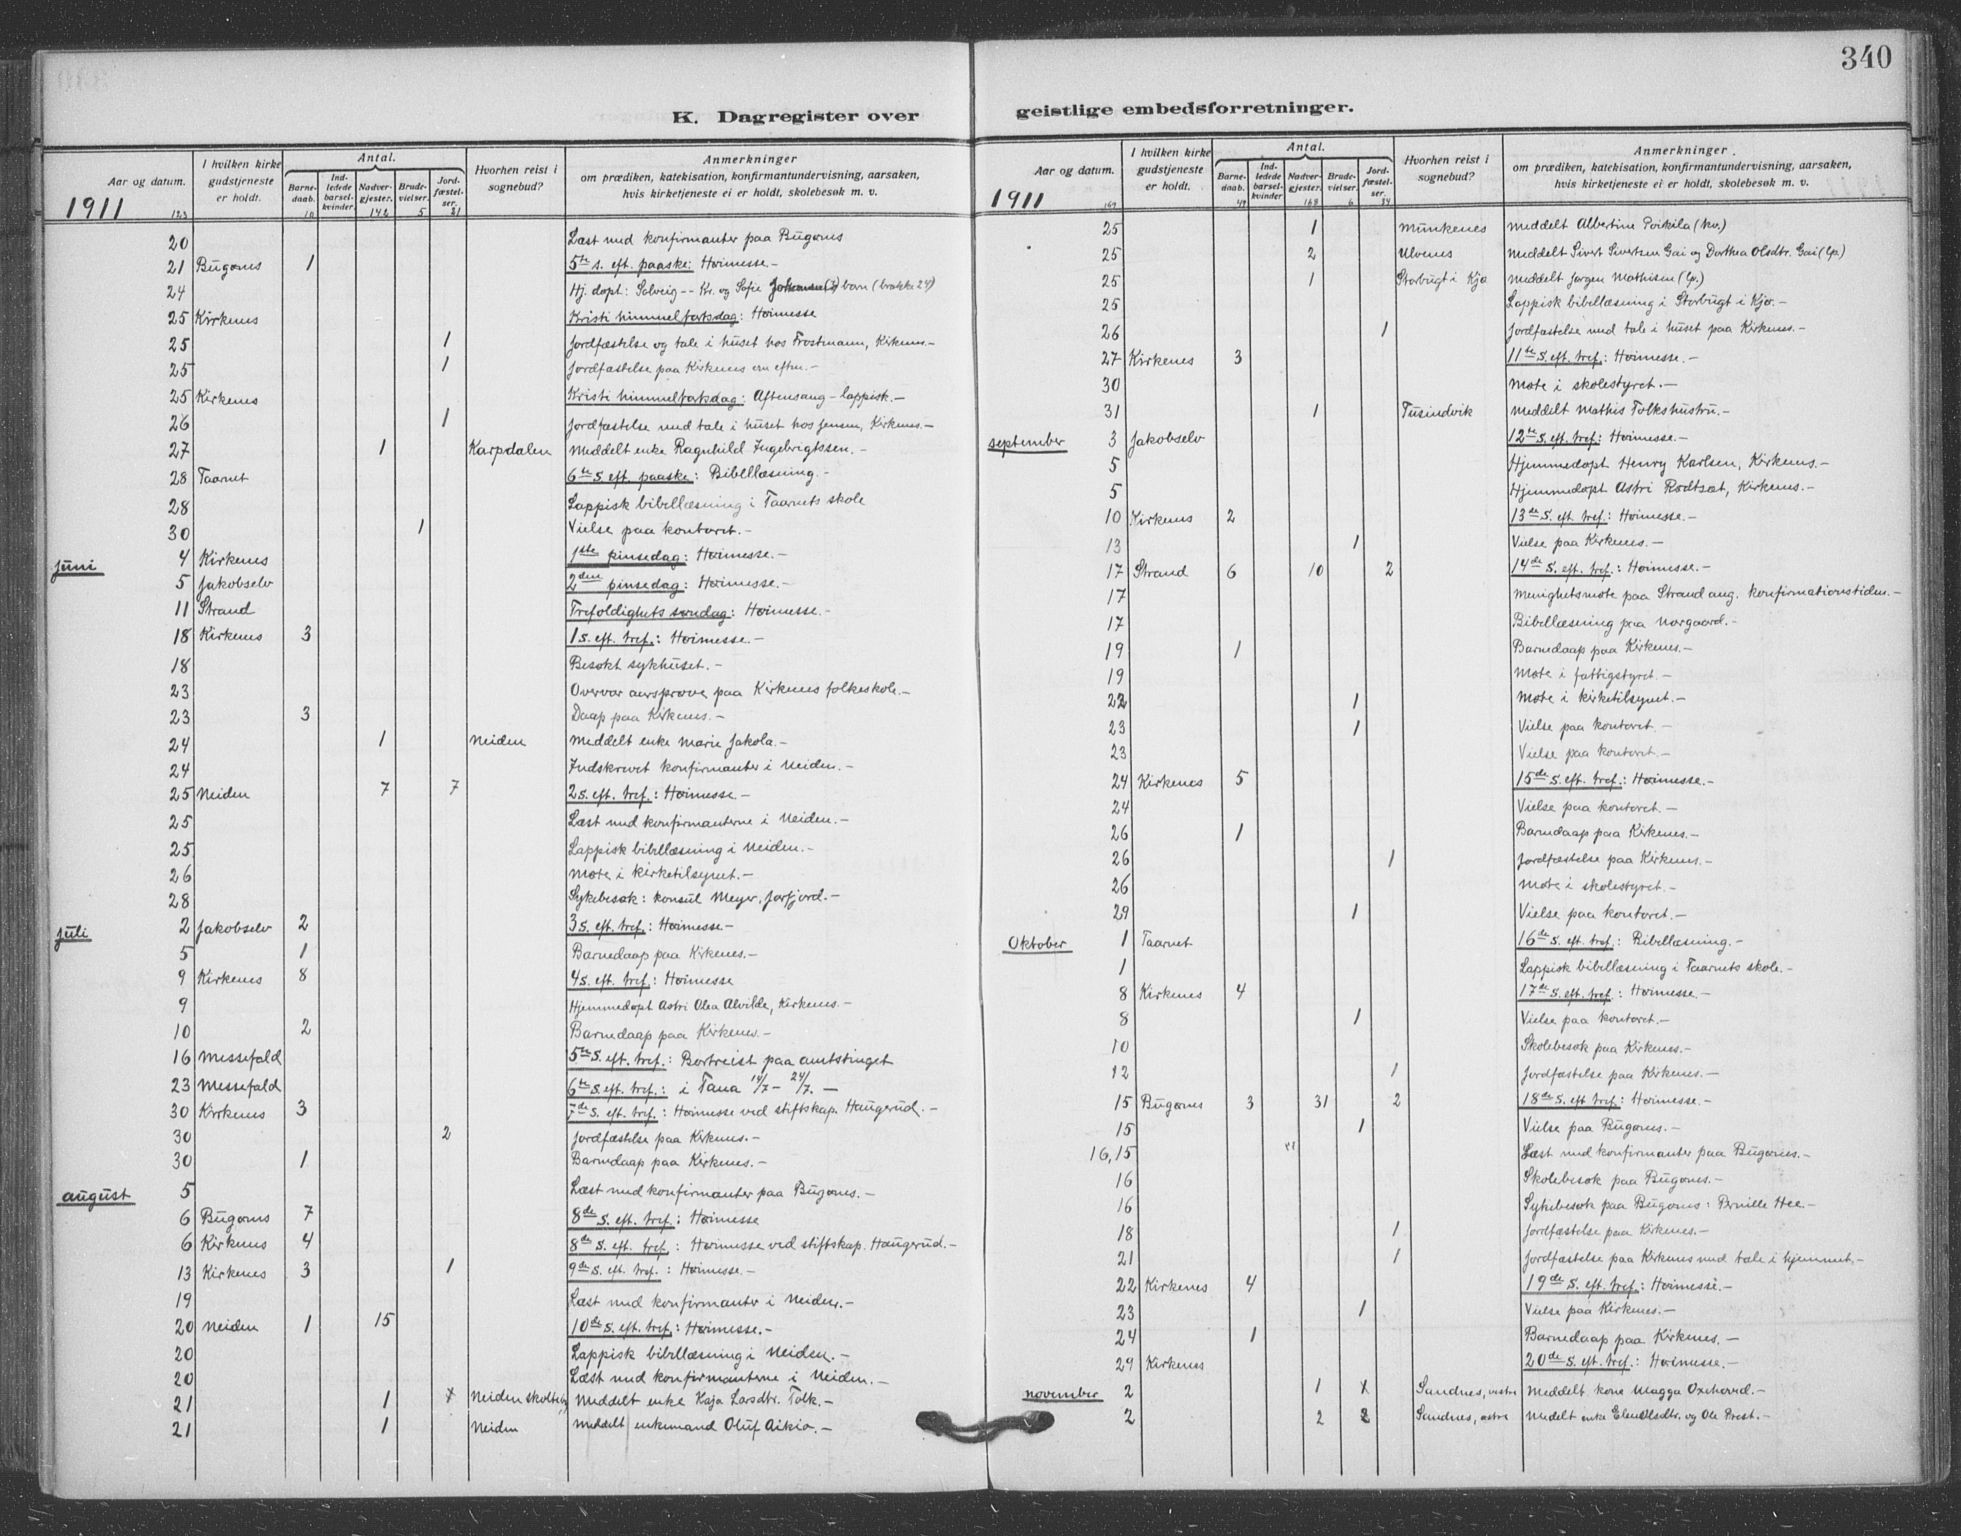 340
K. Dagregister over geistlige embedsforretninger.
Aar og datum. I hvilken kirke gudstjeneste er holdt. Antal. Barnedaab. Indledede barselkvinder. Nadvergjester. Brudevielser. Jordfæstelser. Hvorhen reist i sognebud? Anmerkninger om prædiken, katekisation, konfirmantundervisning, aarsaken, hvis kirketjeneste ei er holdt, skolebesøk m. v.
1911 10 142 5 21
20 Læst med konfirmanter paa Bugønes
21 Bugønes 1 5te s. eft. paaske: Høimesse.-
24 Hj. døpt: Solveig -- Kr. og Sofie barn (brakke 24)
25 Kirkenes Kristi himmelfartsdag: Høimesse
25 1 Jordfæstelse og tale i huset hos Frostmann, Kirkenes.-
25 1 Jordfæstelse paa Kirkenes em eftm.-
25 Kirkenes Kristi himmelfartsdag: Aftensang - lappisk.-
26 1 Jordfæstelse med tale i huset hos Jensen, Kirkenes.-
27 1 Karpdalen Meddelt enke Ragnhild Ingebrigtssen.-
28 Taarnet 6te s. eft. paaske: Bibellæsning.-
28 Lappisk bibellæsning i Taarnets skole
30 1 Vielse paa kontoret.-
juni 4 Kirkenes 1ste pinsedag: Høimesse.-
5 Jakobselv 2den pinsedag: Høimesse.-
11 Strand Trefoldighets søndag: Høimesse.-
18 Kirkenes 3 1 s. eft. tref.: Høimesse.-
18 Besøkt sykhuset.-
23 Overvar aarsprøve paa Kirkenes folkeskole.-
23 3 Daap paa Kirkenes.-
24 1 Neiden Meddelt enke Marie Jakola.-
24 Indskrevet konfirmanter i Neiden.-
25 Neiden 7 7 2 s. eft. tref.: Høimesse.-
25 Læst med konfirmanterne i Neiden.-
25 Lappisk bibellæsning i Neiden.-
26 Møte i kirketilsynet.-
28 Sykebesøk: konsul Meyer, Jarfjord.-
juli 2 Jakobselv 2 3 s. eft. tref.: Høimesse-
5 1 Barnedaap paa Kirkenes.-
9 Kirkenes 8 4 s. eft. tref.: Høimesse
9 Hjemmedøpt Astri Olea Alvilde, Kirkenes.-
10 2 Barnedaap paa Kirkenes.-
16 Messefald 5te s. eft. tref.: Bortreist paa amtstinget
23 Messefald 6te s. eft. tref.: i Tana 14/7 - 24/7.-
30 Kirkenes 3 7de s. eft. tref.: Høimesse ved stiftskap. Haugerud.-
30 2 Jordfæstelse paa Kirkenes.-
30 1 Barnedaap paa Kirkenes.-
august 5 Læst med konfirmanter paa Bugønes.-
6 Bugønes 7 8de s. eft. tref.: Høimesse
6 Kirkenes 4 8de s. eft. tref.: Høimesse ved stiftskap. Haugerud.-
13 Kirkenes 3 1 9de s. eft. tref.: Høimesse.-
19 Læst med konfirmanter i Neiden.-
20 Neiden 1 15 10de s. eft. tref.: Høimesse.-
20 Lappisk bibellæsning i Neiden.-
20 Læst med konfirmanterne i Neiden.-
21 1 x Neiden Meddelt enke Kaja Larsdtr. Tolk.-
21 1 Neiden Meddelt enkemand Oluf Aikio.-
Aar og datum. I hvilken kirke gudstjeneste er holdt. Antal. Barnedaab. Indledede barselkvinder. Nadvergjester. Brudevielser. Jordfæstelser. Hvorhen reist i sognebud? Anmerkninger om prædiken, katekisation, konfirmantundervisning, aarsaken, hvis kirketjeneste ei er holdt, skolebesøk m. v.
1911 49 168 6 34
25 1 Munkenes Meddelt Albertine (kv.)
25 2 Ulvenes Meddelt Sivert Sivertsen Gai og Dorthea Olsdtr. Gai (lp.)
25 1 Storbugt i Kjø Meddelt Jørgen Mathisen (lp.)
25 Lappisk bibellæsning i Storbugt i Kjø.-
26 1 Jordfæstelse med tale i huset paa Kirkenes.-
27 Kirkenes 3 11te s. eft. tref.: Høimesse.-
30 Møte i skolestyret.-
31 1 Tusindvik Meddelt Mathis Tolks hustru.-
september 3 Jakobselv 12te s. eft. tref.: Høimesse.-
5 Hjemmedøpt Henry Karlsen, Kirkenes.-
5 Hjemmedøpt Astri Rødtsæt, Kirkenes.-
10 Kirkenes 2 13de s. eft. tref.: Høimesse.-
13 1 Vielse paa Kirkenes.-
17 Strand 6 10 2 14de s. eft. tref.: Høimesse.-
17 Menighetsmøte paa Strand ang. konfirmationstiden.-
17 Bibellæsning paa Norgaard.-
19 1 Barnedaap paa Kirkenes.-
19 Møte i fattigstyret.-
22 1 Møte i kirketilsynet.-
23 1 Vielse paa kontoret.-
23 Vielse paa kontoret.-
24 Kirkenes 5 15de s. eft. tref.: Høimesse.-
24 Vielse paa kontoret.-
26 1 Barnedaap paa Kirkenes.-
26 1 Jordfæstelse paa Kirkenes.-
26 Møte i skolestyret.-
29 1 Vielse paa kontoret.-
Oktober 1 Taarnet 16de s. eft. tref.: Bibellæsning.-
1 Lappisk bibellæsning i Taarnets skole.-
8 Kirkenes 4 17de s. eft. tref.: Høimesse.-
8 1 Vielse paa kontoret.-
10 Skolebesøk paa Kirkenes.-
12 1 Jordfæstelse paa Kirkenes.-
15 Bugønes 3 31 2 18de s. eft. tref.: Høimesse.-
15 1 Vielse paa Bugønes.-
16,15 Læst med konfirmanter paa Bugønes.-
16 Skolebesøk paa Bugønes.-
16 Sykebesøk paa Bugønes: Pernille Hee.-
18 1 Jordfæstelse paa Kirkenes.-
21 1 Jordfæstelse paa Kirkenes med tale i hjemmet.-
22 Kirkenes 4 19de s. eft. tref.: Høimesse.-
23 1 Vielse paa Kirkenes.-
24 1 Barnedaap paa Kirkenes.-
29 Kirkenes 20de s. eft. tref.: Høimesse.-
november 2 1 x Sandnes, vestre Meddelt kone Magga Oxehoved.-
2 2 2 Sandnes, østre Medelt enke Elen Olsdtr. og Ole Prest.-